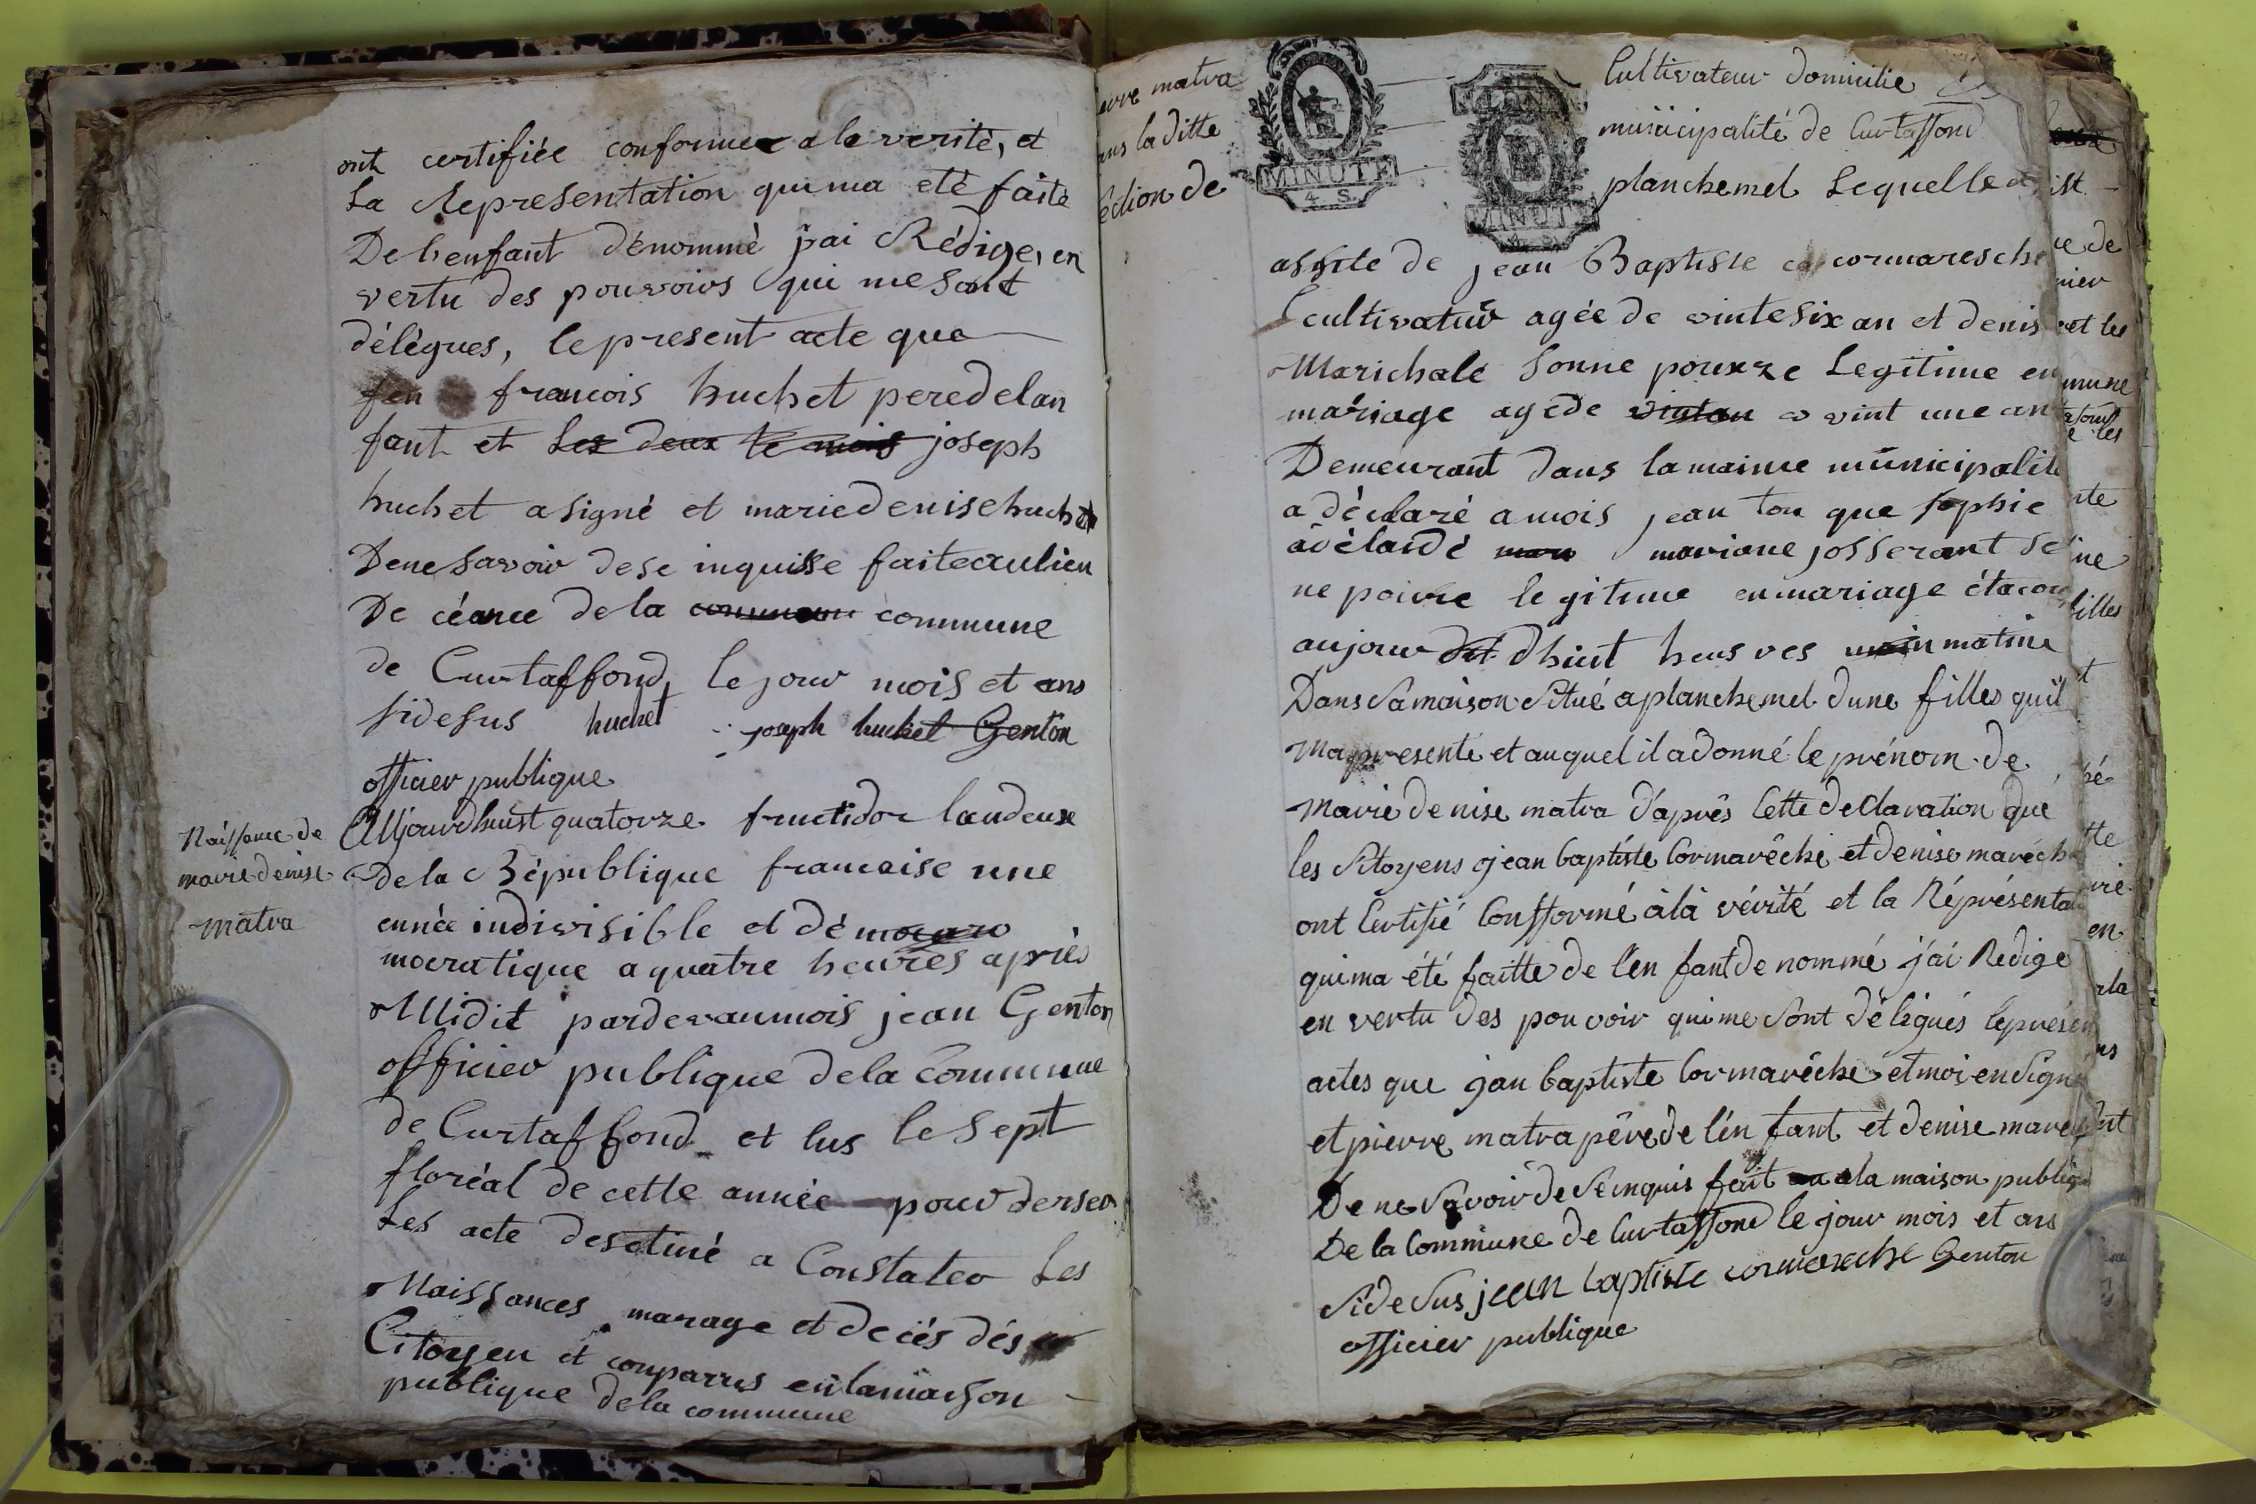 ont certifiée conformer a la verité, et
La Representation qui ma eté faite
De l'enfant dénommé jai Rédige, en
vertu des pouvoirs qui me sont
délègues, le present acte que
francois huchet pere de lan
fant et Les deux te mois joseph
huchet a signé et marie denise huchet
De ne savoir de se inquisse fait au lieu
De céance de la commune commune
de Curtaffond le jour mois et ans
sidesus huchet joseph huchet Genton
officier publique
Naissance de
marie denise
matra
Aujourdhuit quatorze fructidor landeuxe
De la République francaise une
ennée indivisible et dé
mocratique a quatre heures apriès
Midit pardevaumois jean Genton
officier publique de la Commune
de Curtaffond et lus le Sept
floréal de cette année pour derser
Les acte desetiné a Constater Les
Naissances marage et decés dés
Citoyen et comparrus en la maison
publique de la commune
erre matra
ans la ditte
ection de
MINUTE
4. S.
MINUTE
Cultivateur domicilie
municipalité de Curtaffond
planchemel Lequelle
assite de jean Baptiste cormaresche
cultivateur agée de vintesix an et denis
Marichale sonne pouxze Legitime en
mariage agede vintan vint une an
Demeurant dans la maime municipalité
a déclaré amois jean ton que sophie
adélaidé mariane josserant se
ne poivre legitime en mariage étacou
aujour dhuit heusres matine
Dans sa maison Situé a planchemel dune filles quil
Ma presenté et auquel il a donné le prénom de
Marie denise matra d'aprês Cette declaration que
les Sitoyens jean baptiste Cormarêche et denise marécha
ont Certifié Confformé àlà vérité et la Réprésenta
quima été faitte de l'en fant de nommé j'ai Redige
en vertu des pouvoir qui me sont déligués léprésen
actes que jan baptiste Cormarêche et moi en signé
et pierre matra pêre de l'én fant et denise mare
De ne Savoir de Sénquis fait a la maison publiq
De la Commune de Curtaffond le jour mois et ans
Sidesus jean baptiste cormareche Genton
officier publique